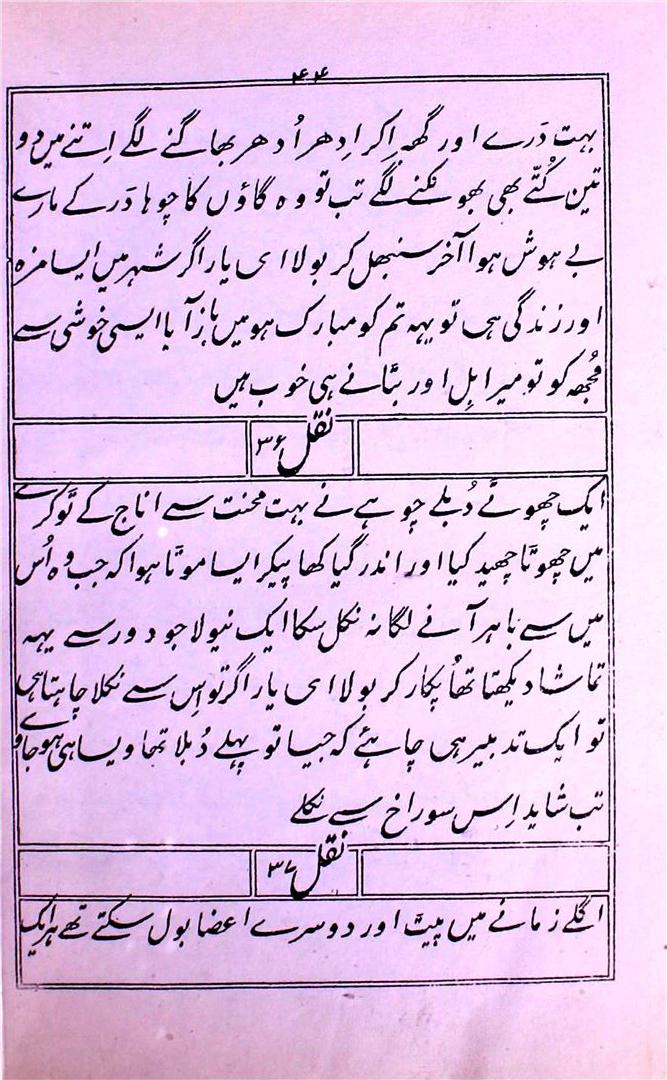 ۴۴
بہت دَرے اور گھبراکر اِدھر اُدھر بھاگنے لگے اِتنے میں دو
تین کُتّے بھی بھونکنے لگے تب تو وہ گاؤں کا چوہا دَر کے مارے
بے ہوش ہوا آخر سنبھل کر بولا ای یار اگر شہر میں ایسا مزہ
اور زندگی ہی تو یہہ تم کو مبارک ہو میں باز آیا ایسی خوشی سے
مُجھہ کو تو میرا بِل اور بتّانے ہی خوب ہیں
نقل ۳۶
ایک چھوتے دُبلے چوہے نے بہت محنت سے اناج کے توکرے
میں چھوتا چھید کیا اور اندر گیا کھا پیکر ایسا موتا ہوا کہ جب وہ اُس
میں سے باہر آنے لگا نہ نکل سکا ایک نیولا جو دور سے یہہ
تماشا دیکھتا تھا پُکار کر بولا ای یار اگر تو اِس سے نکلا چاہتا ہی
تو ایک تدبیر ہی چاہئے کہ جیسا تو پہلے دُبلا تھا ویسا ہی ہو جاوے
تب شاید اِس سوراخ سے نکلے
نقل ۳۷
اگلے زمانے میں پیت اور دوسرے اعضا بول سکتے تھے ہر ایک